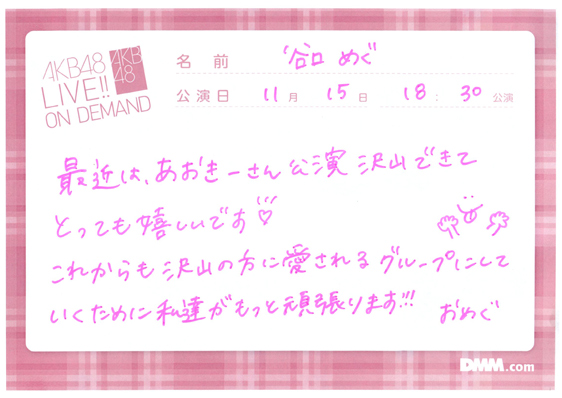 AKB48
LIVE!!
ON DEMAND
AKB
48
名前 谷口 めぐ
公演日 11月 15日 18:30 公演
最近は、あおきーさん公演 沢山できて
とっても嬉しいです
これからも沢山の方に愛されるグループにして
いくために私達がもっと頑張ります!!!
おめぐ
DMM.com